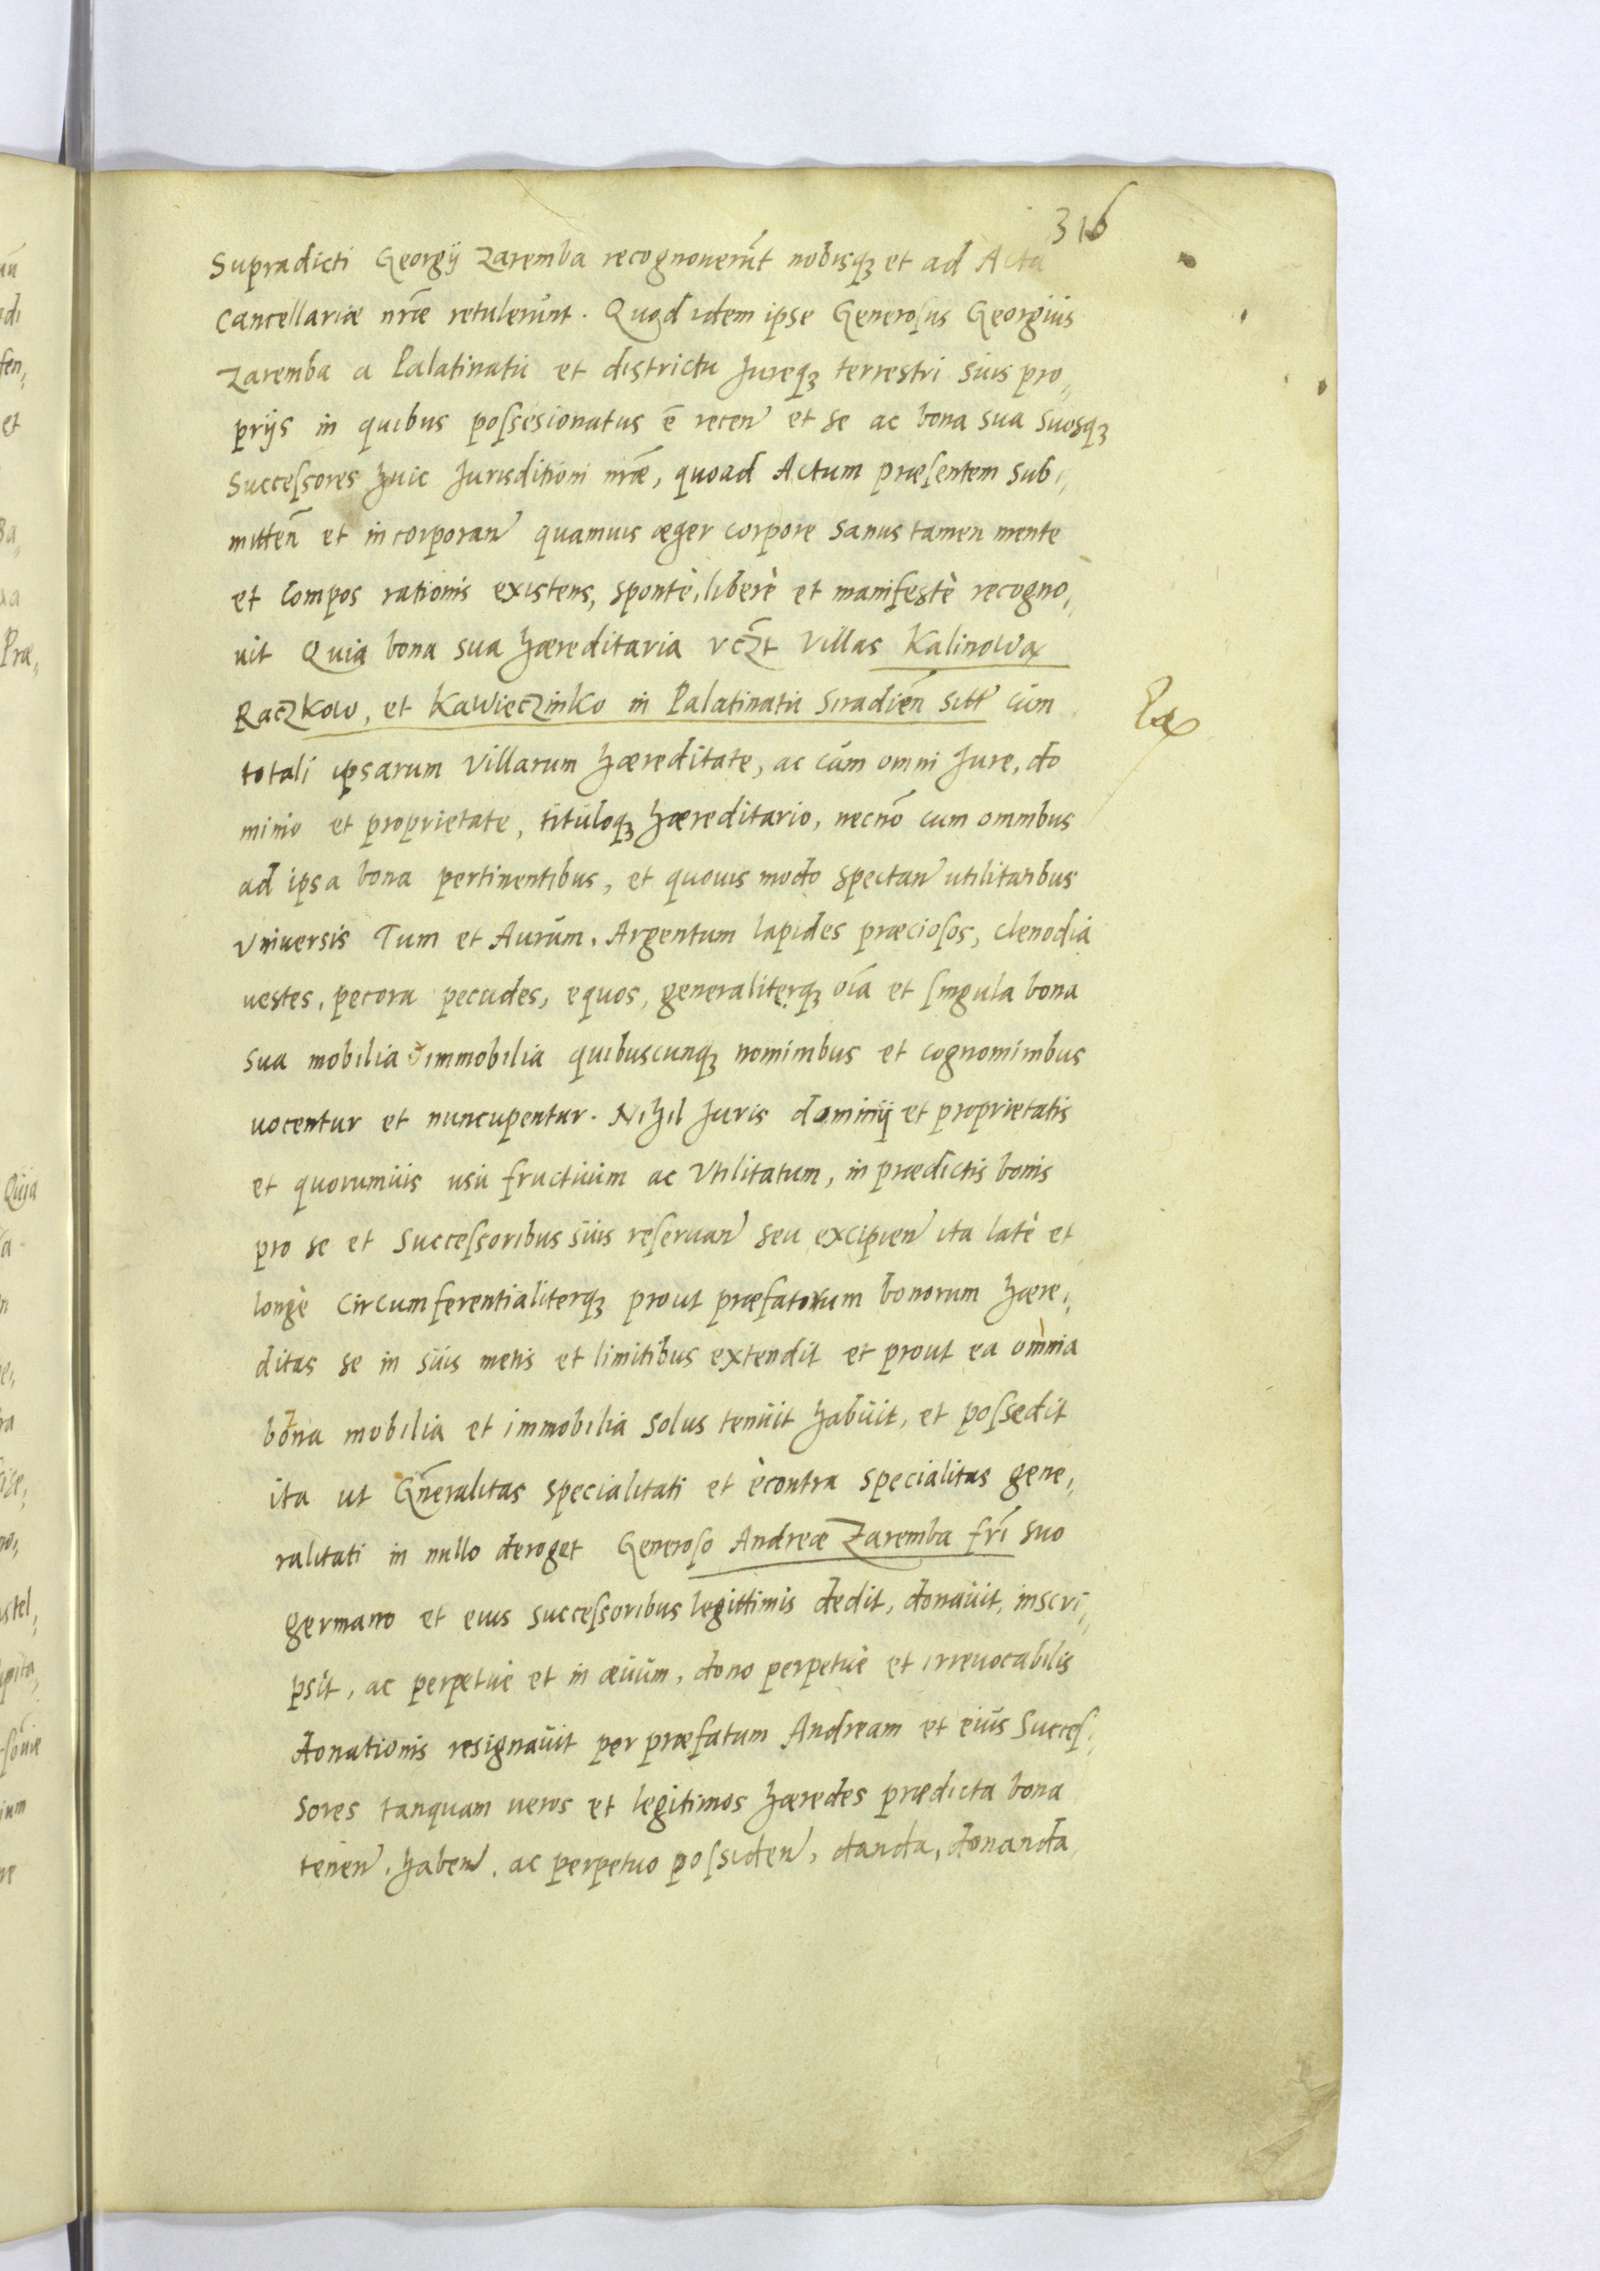 316
Supradicti Georgij Zaremba recognouerũt nobisq3 et ad Acta
Cancellariæ nræ̃ retulerunt. Quod idem ipse Generosus Georgius
Zaremba a Palatinatu et districtu Jureq3 terrestri suis pro,
prijs in quibus possesionatus ẽ recen et se ac bona sua suosq3
Successores huic Jurisditioni nræ̃, quoad Actum præsentem sub,
mitteñ et incorporan quamuis æger corpore sanus tamen mente
et compos rationis existens, spontè, liberè et manifestè recogno,
uit Quia bona sua hæreditaria vcz̃t Villas Kalinowa
Raczkow, et Kawieczinko in Palatinatu Siradień sitt cum
totali ipsarum Villarum hæreditate, ac cum omni Jure, do
minio et proprietate, tituloq3 hæreditario, necnõ cum omnibus
ad ipsa bona pertinentibus, et quouis modo spectan utilitatibus
Vniuersis Tum et Aurum, Argentum lapides præciosos, clenodia
uestes, pecora pecudes, equos, generaliterq3 oĩa et singula bona
sua mobilia & immobilia quibuscunq3 nominibus et cognominibus
uocentur et nuncupentur. Nihil Juris dominij et proprietatis
et quorumuis usu fructuum ac Vtilitatum, in prædictis bonis
pro se et Successoribus suis reseruan seu excipien ita latè et
longè circumferentialiterq3 prout præfatorum bonorum hære,
ditas se in suis metis et limitibus extendit et prout ea omnia
bona mobilia et immobilia solus tenuit habuit, et possedit
ita ut Gñeralitas specialitati et ècontra specialitas gene,
ralitati in nullo deroget Generoso Andreæ Zaremba frĩ suo
germano et eius successoribus legittimis dedit, donauit, inscri,
psit, ac perpetuè et in æuum, dono perpetuè et irreuocabilis
donationis resignauit per præfatum Andream et eius Succes,
sores tanquam ueros et legitimos hæredes prædicta bona
tenen, haben, ac perpetuo possiden, danda, donanda